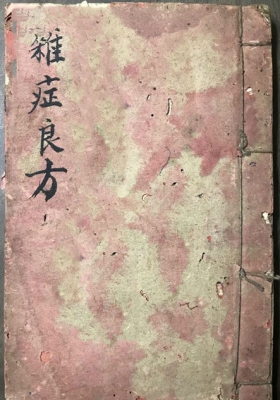 雜症良方